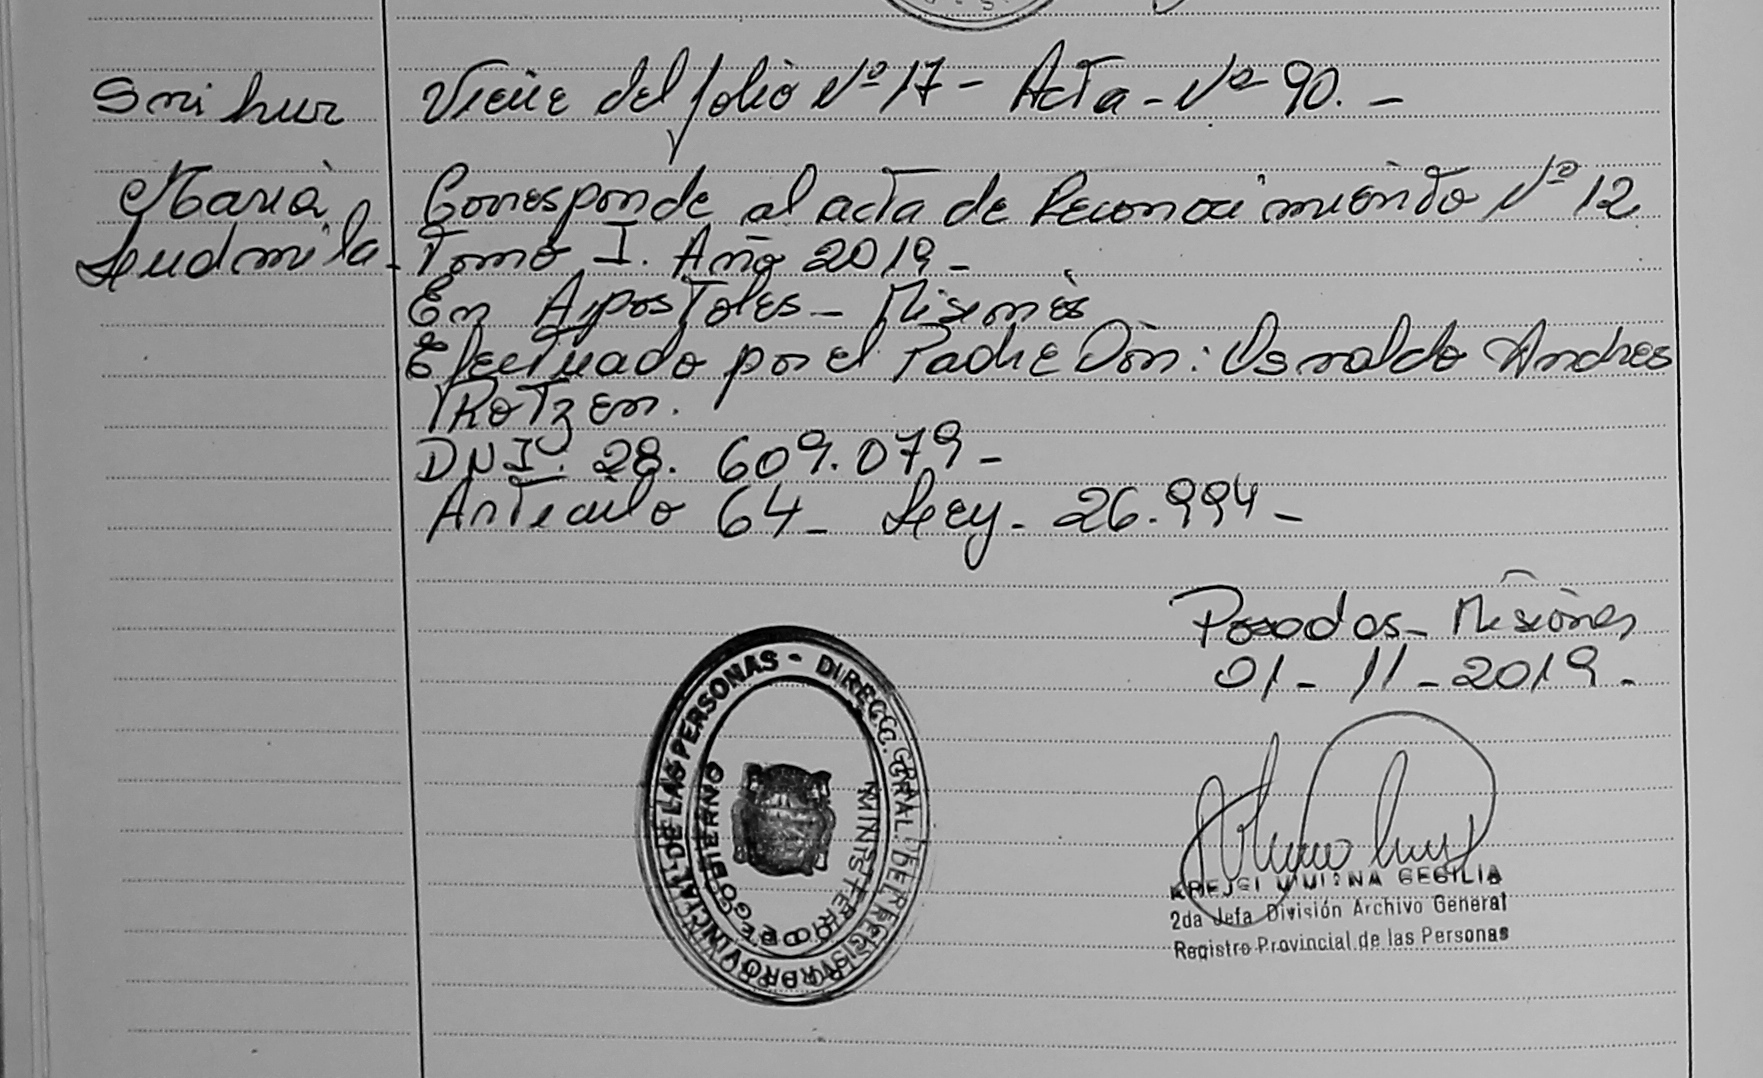 Smihur
María
Ludmila
Viene del folio Nº 17 - Acta - Nº 90. -
Corresponde al acta de Reconocimiento Nº 12
Tomo I. Año 2019 -
En Apostoles - Misiones
Efectuado por el Padre Don: Osvaldo Andres
TROTZEN.
DNI. 28. 609.079 -
Articulo 64 - Ley - 26.994 -
Posadas - Misiones
01 - 11 - 2019 -
DIRECC. GRAL. DEL REGISTRO PROVINCIAL DE LAS PERSONAS -
MINISTERIO DE GOBIERNO
CECILIA
2da Jefa División Archivo General
Registro Provincial de las Personas